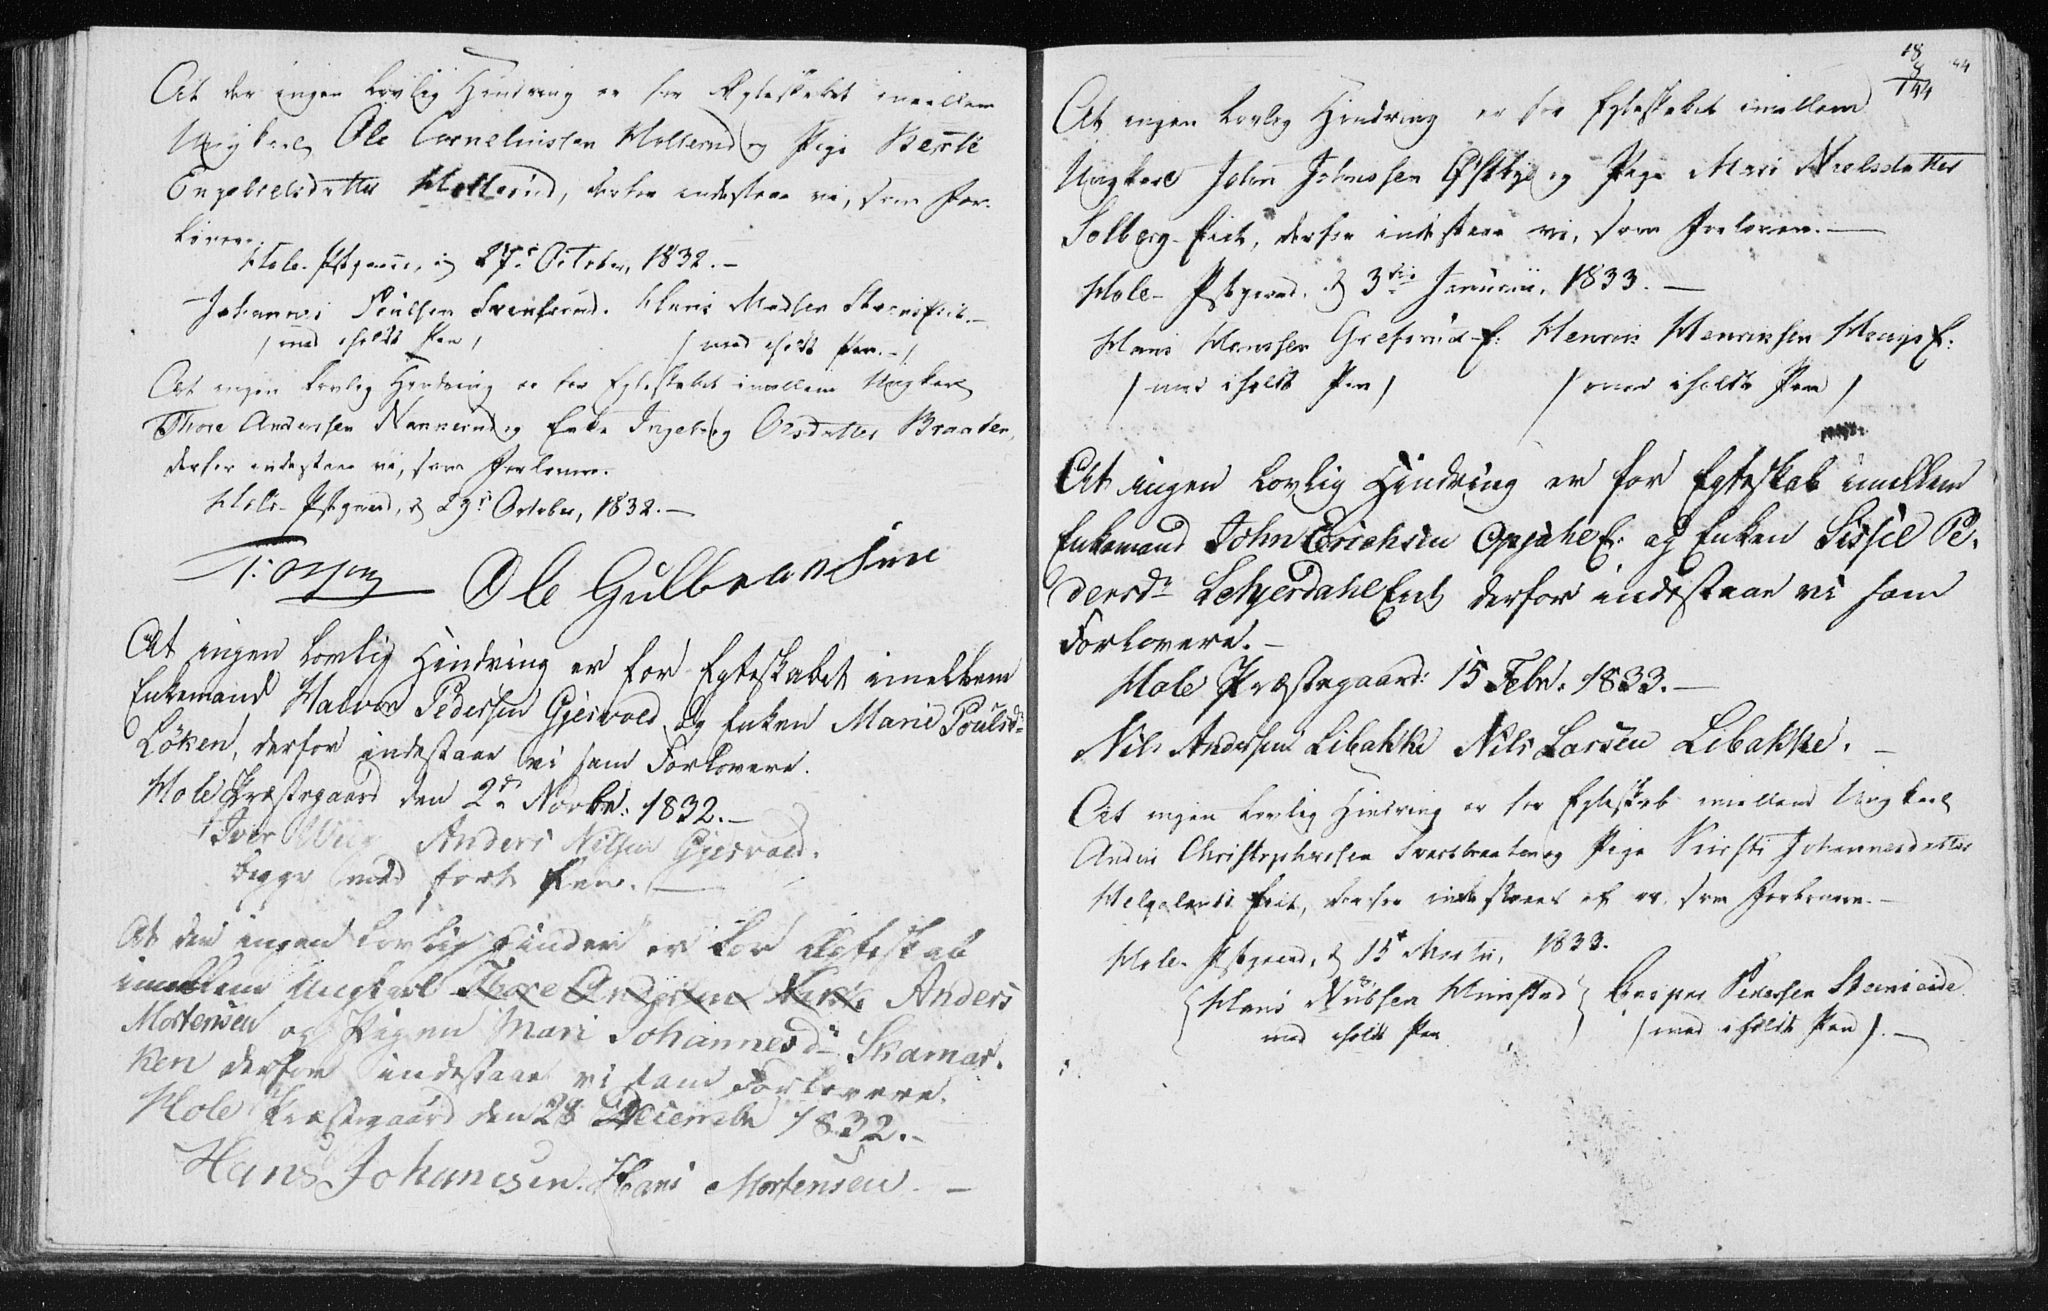 At der ingen Lovlig Hindring er for Ægteskabet imellem
Ungkarl Ole Corneliussen Hollerud og Pige Berte
Engebretsdatter Hollerud, derfor indestaae vi, som For-
lovere.
Hole Pstgaard, d 27de October, 1832.-
Johannes Poulsen Svensrud. Hans Madsen
/ med iholdt Pen / / med iholdt Pen.-/
At ingen Lovlig Hindring er for Egteskabet imellem Ungkarl
Thore Andersen Nannerud og Enke Ingeborg Olsdatter Braaten,
derfor indestaae vi, som Forlovere.
Hole- Pstgaard, d 29de October, 1832.-
Ole Gulbransene
At ingen Lovlig Hindring er for Egteskabet imellem
Enkemand Halvor Pedersen Gjesvold og Enken Marie Poulsdr
Löken, derfor indestaae vi som Forlovere.
Hole Præstegaard den 2dn Novbr: 1832.-
Iver Wiig Anders Nilsen Gjesvold.
begge med ført Pen.-
At der ingen Lovlig Hinder er for Ægteskab
imellem Ungkarl Thore Andersen Anders
Mortensen og Pigen Mari Johannesdr Skamar-
ken derfor indestaae vi som Forlovere.
Hole Præstegaard den 28 December 1832.-
Hans Johanesen. Hans Mortensen.-
18
4
144
44
At ingen Lovlig Hindring er for Egteskabet imellem
Ungkarl John Johnssen Østbye og Pige Mari Nielsdatter
Solberg-Eiet, derfor indestaae vi, som Forlovere.-
Hole- Pstgaard, d 3die Januarii, 1833.-
Hans Hanssen Gjesrud-E: Henrik Henriksen E:
/ med iholdt Pen / / med iholdt Pen /
At ingen Lovlig Hindring er for Egteskab imellem
Enkemand John Erichsen Opsahl E: og Enken Sissel Pe-
dersdr Lehjerdahl Ent derfor indestaae vi som
Forlovere.-
Hole Præstegaard: 15 Febr: 1833.-
Nils Andersen Libakke Nils Larsen Libakke.-
At ingen Lovlig Hindring er for Egteskab imellem Ungkarl
Anders Christophersen Svartbraaten og Pige Kirsti Johannesdatter
Helgelands Eiet, derfor indestaaes af os som Forlovere.-
Hole- Pstgaard, d 15de Martii, 1833.
Hans Nübsen Himstad Casper Pedersen
med iholdt Pen / med iholdt Pen /.-